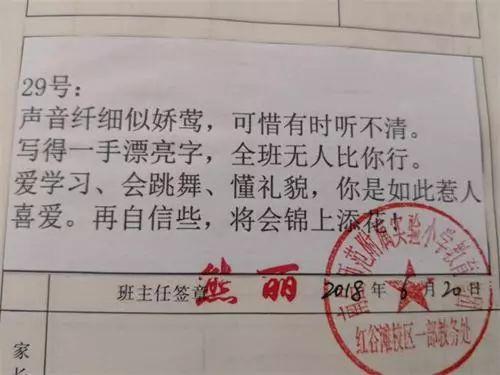 29号：
声音纤细似娇莺，可惜有时听不清。
写得一手漂亮字，全班无人比你行。
爱学习、会跳舞、懂礼貌，你是如此惹人
喜爱。再自信些，将会锦上添花！
班主任签章 熊丽 2018年6月20日
范附属实验小学教育
红谷滩校区一部教务处
家
长